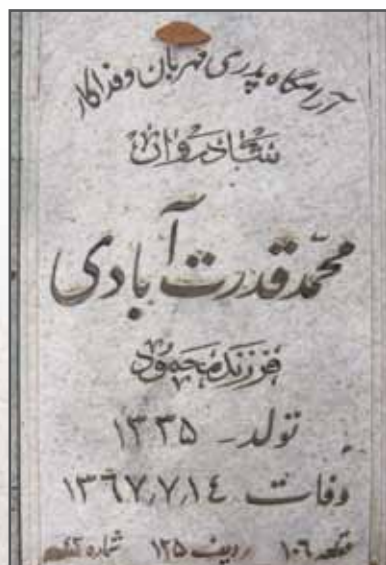 آرامگاه پدری مهربان و فداکار
شادروان
محمد قدرت آبادی
فرزند محمود
تولد - ۱۳۳۵
وفات ۱۳۶۷٫۷٫۱۴
قطعه ۱۰۶ ردیف ۱۲۵ شماره